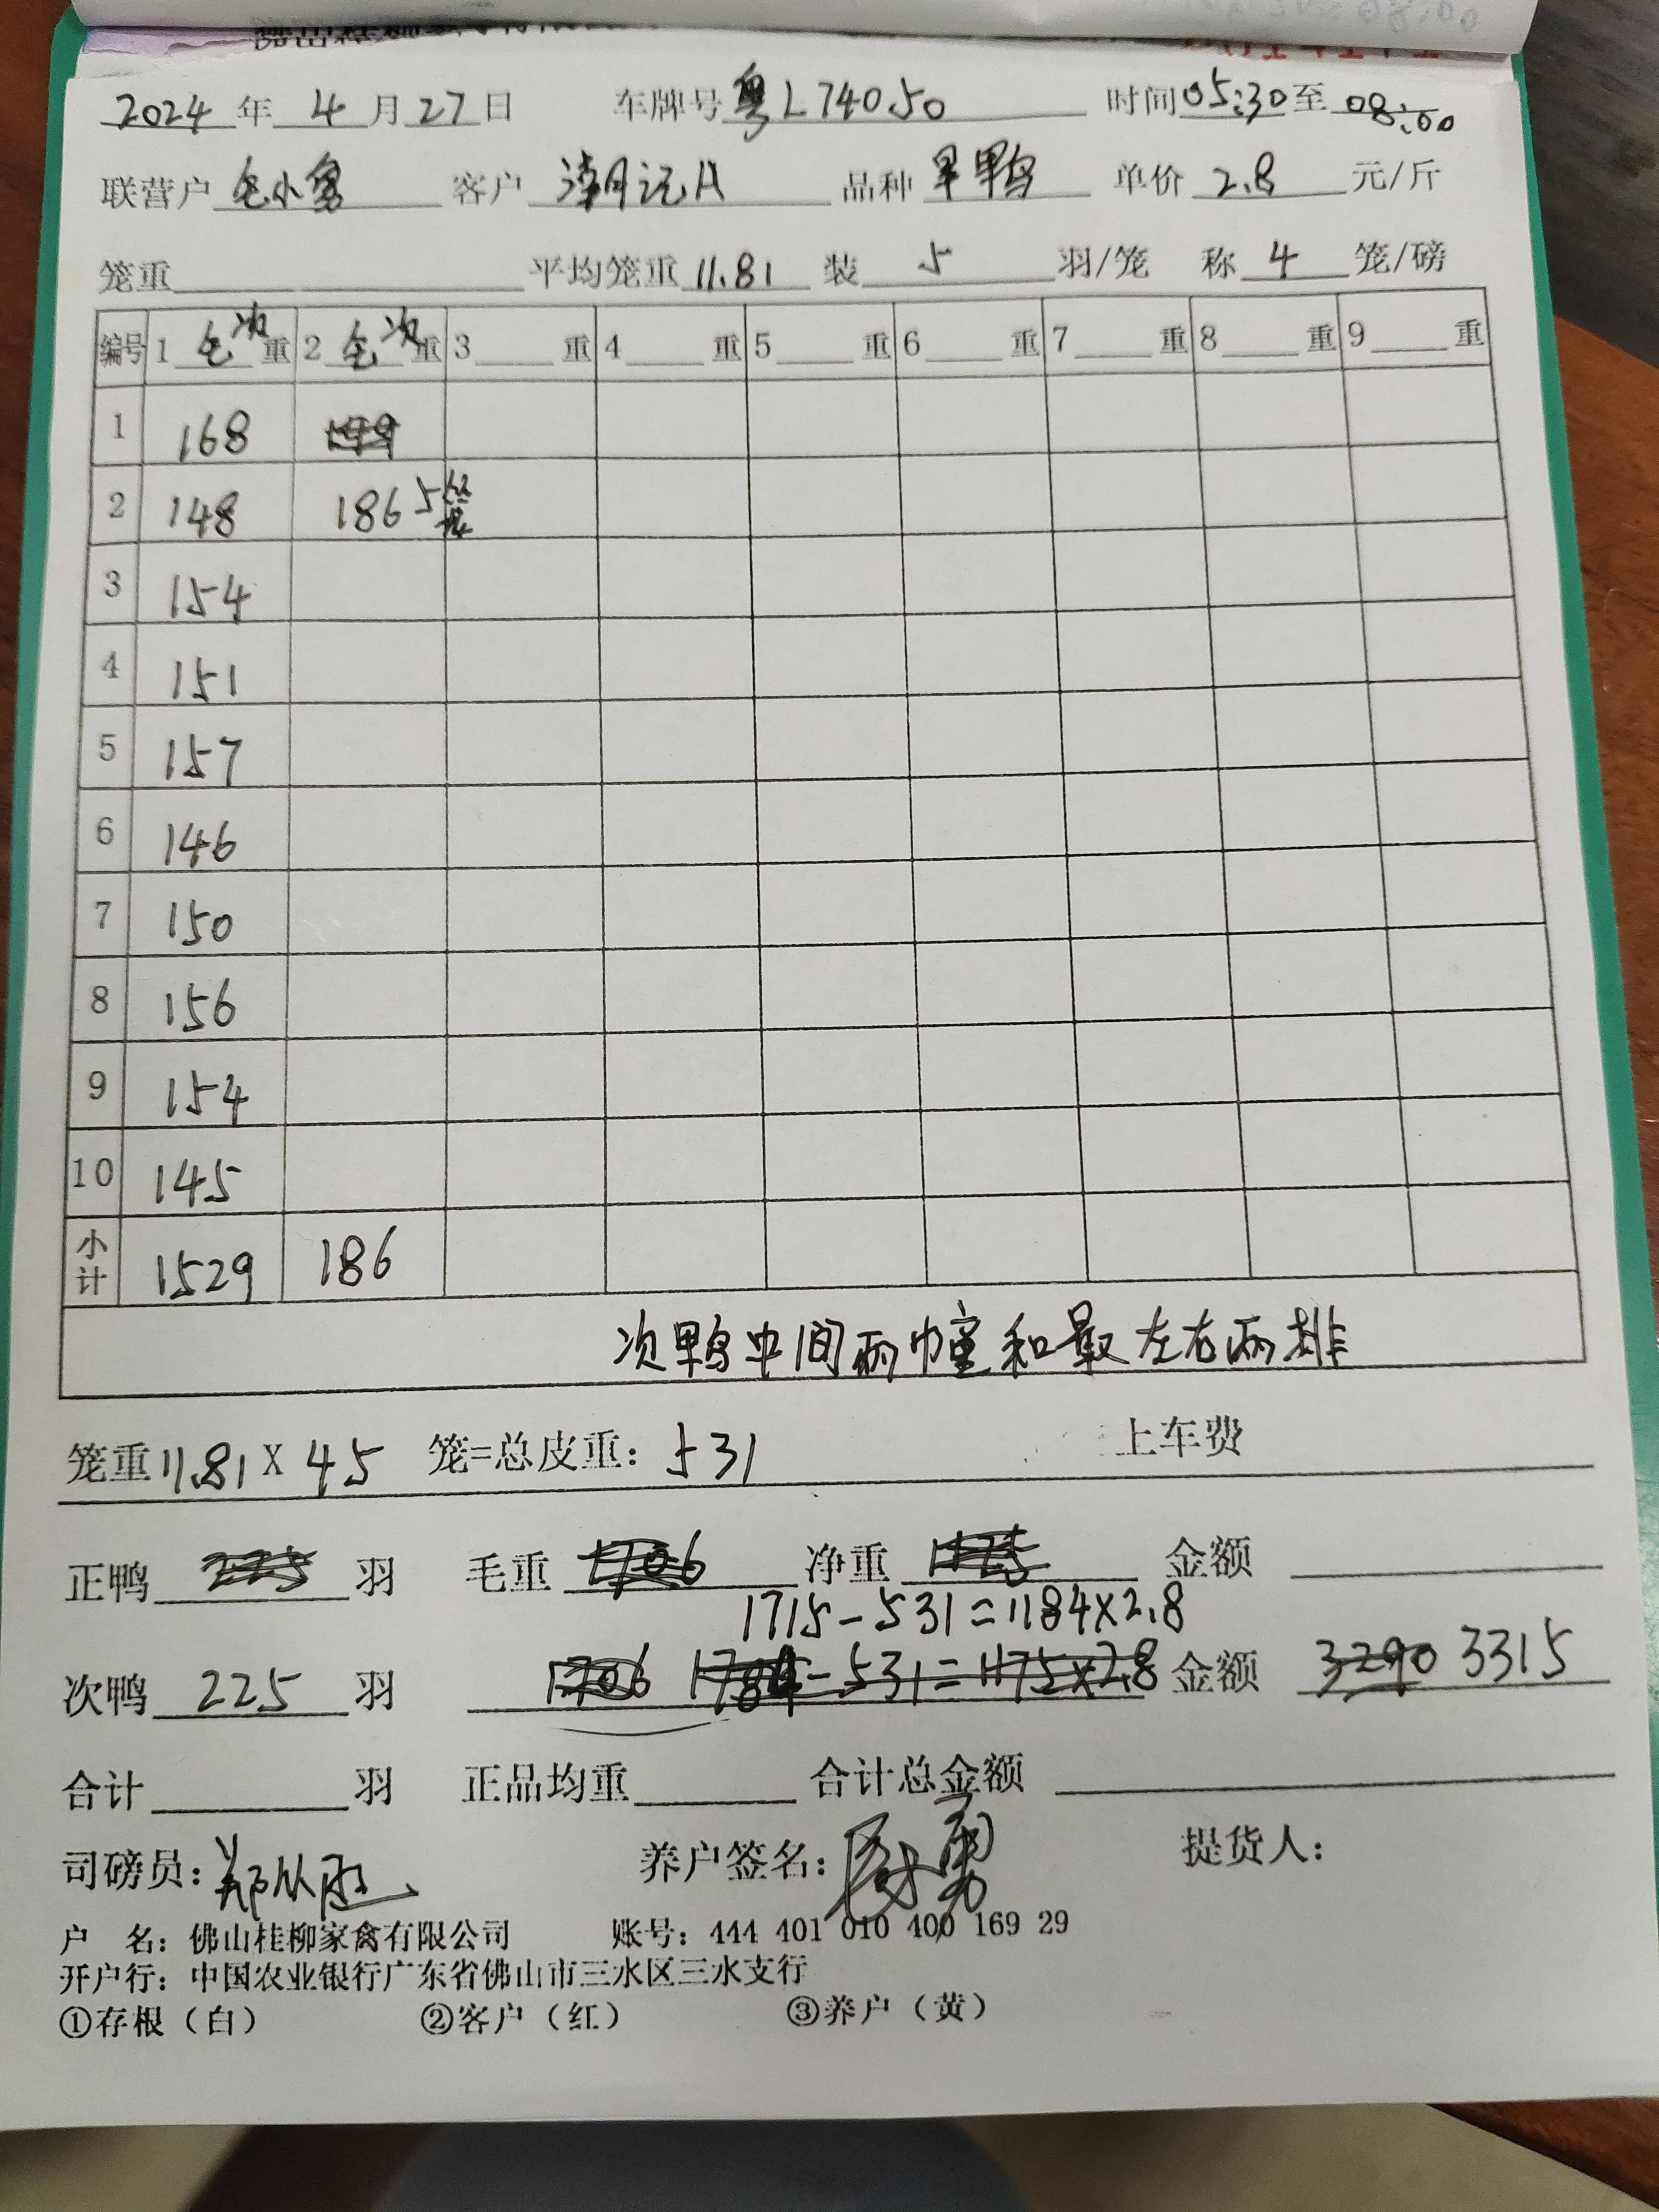 2024 年 4 月 27 日 车牌号 粤L74050 时间 05:30 至 08:00
联营户 客户 品种 单价 2.8 元/斤
笼重 平均笼重 11.81 装 5 羽/笼 称 4 笼/磅
编号 1 毛次重 2 毛次重 3 重 4 重 5 重 6 重 7 重 8 重 9 重
1 168
2 148 186 5笼
3 154
4 151
5 157
6 146
7 150
8 156
9 154
10 145
小计 1529 186
次鸭中间两幢和最左右两排
笼重 11.81 X 45 笼=总皮重: 531 上车费
正鸭 225 羽 毛重 1706 净重 1175 金额
1715-531=1184×2.8
次鸭 225 羽 1706 -531=1175×2.8 金额 3290 3315
合计 羽 正品均重 合计总金额
司磅员: 养户签名: 提货人:
户 名: 佛山桂柳家禽有限公司 账号: 444 401 010 400 169 29
开户行: 中国农业银行广东省佛山市三水区三水支行
①存根（白） ②客户（红） ③养户（黄）